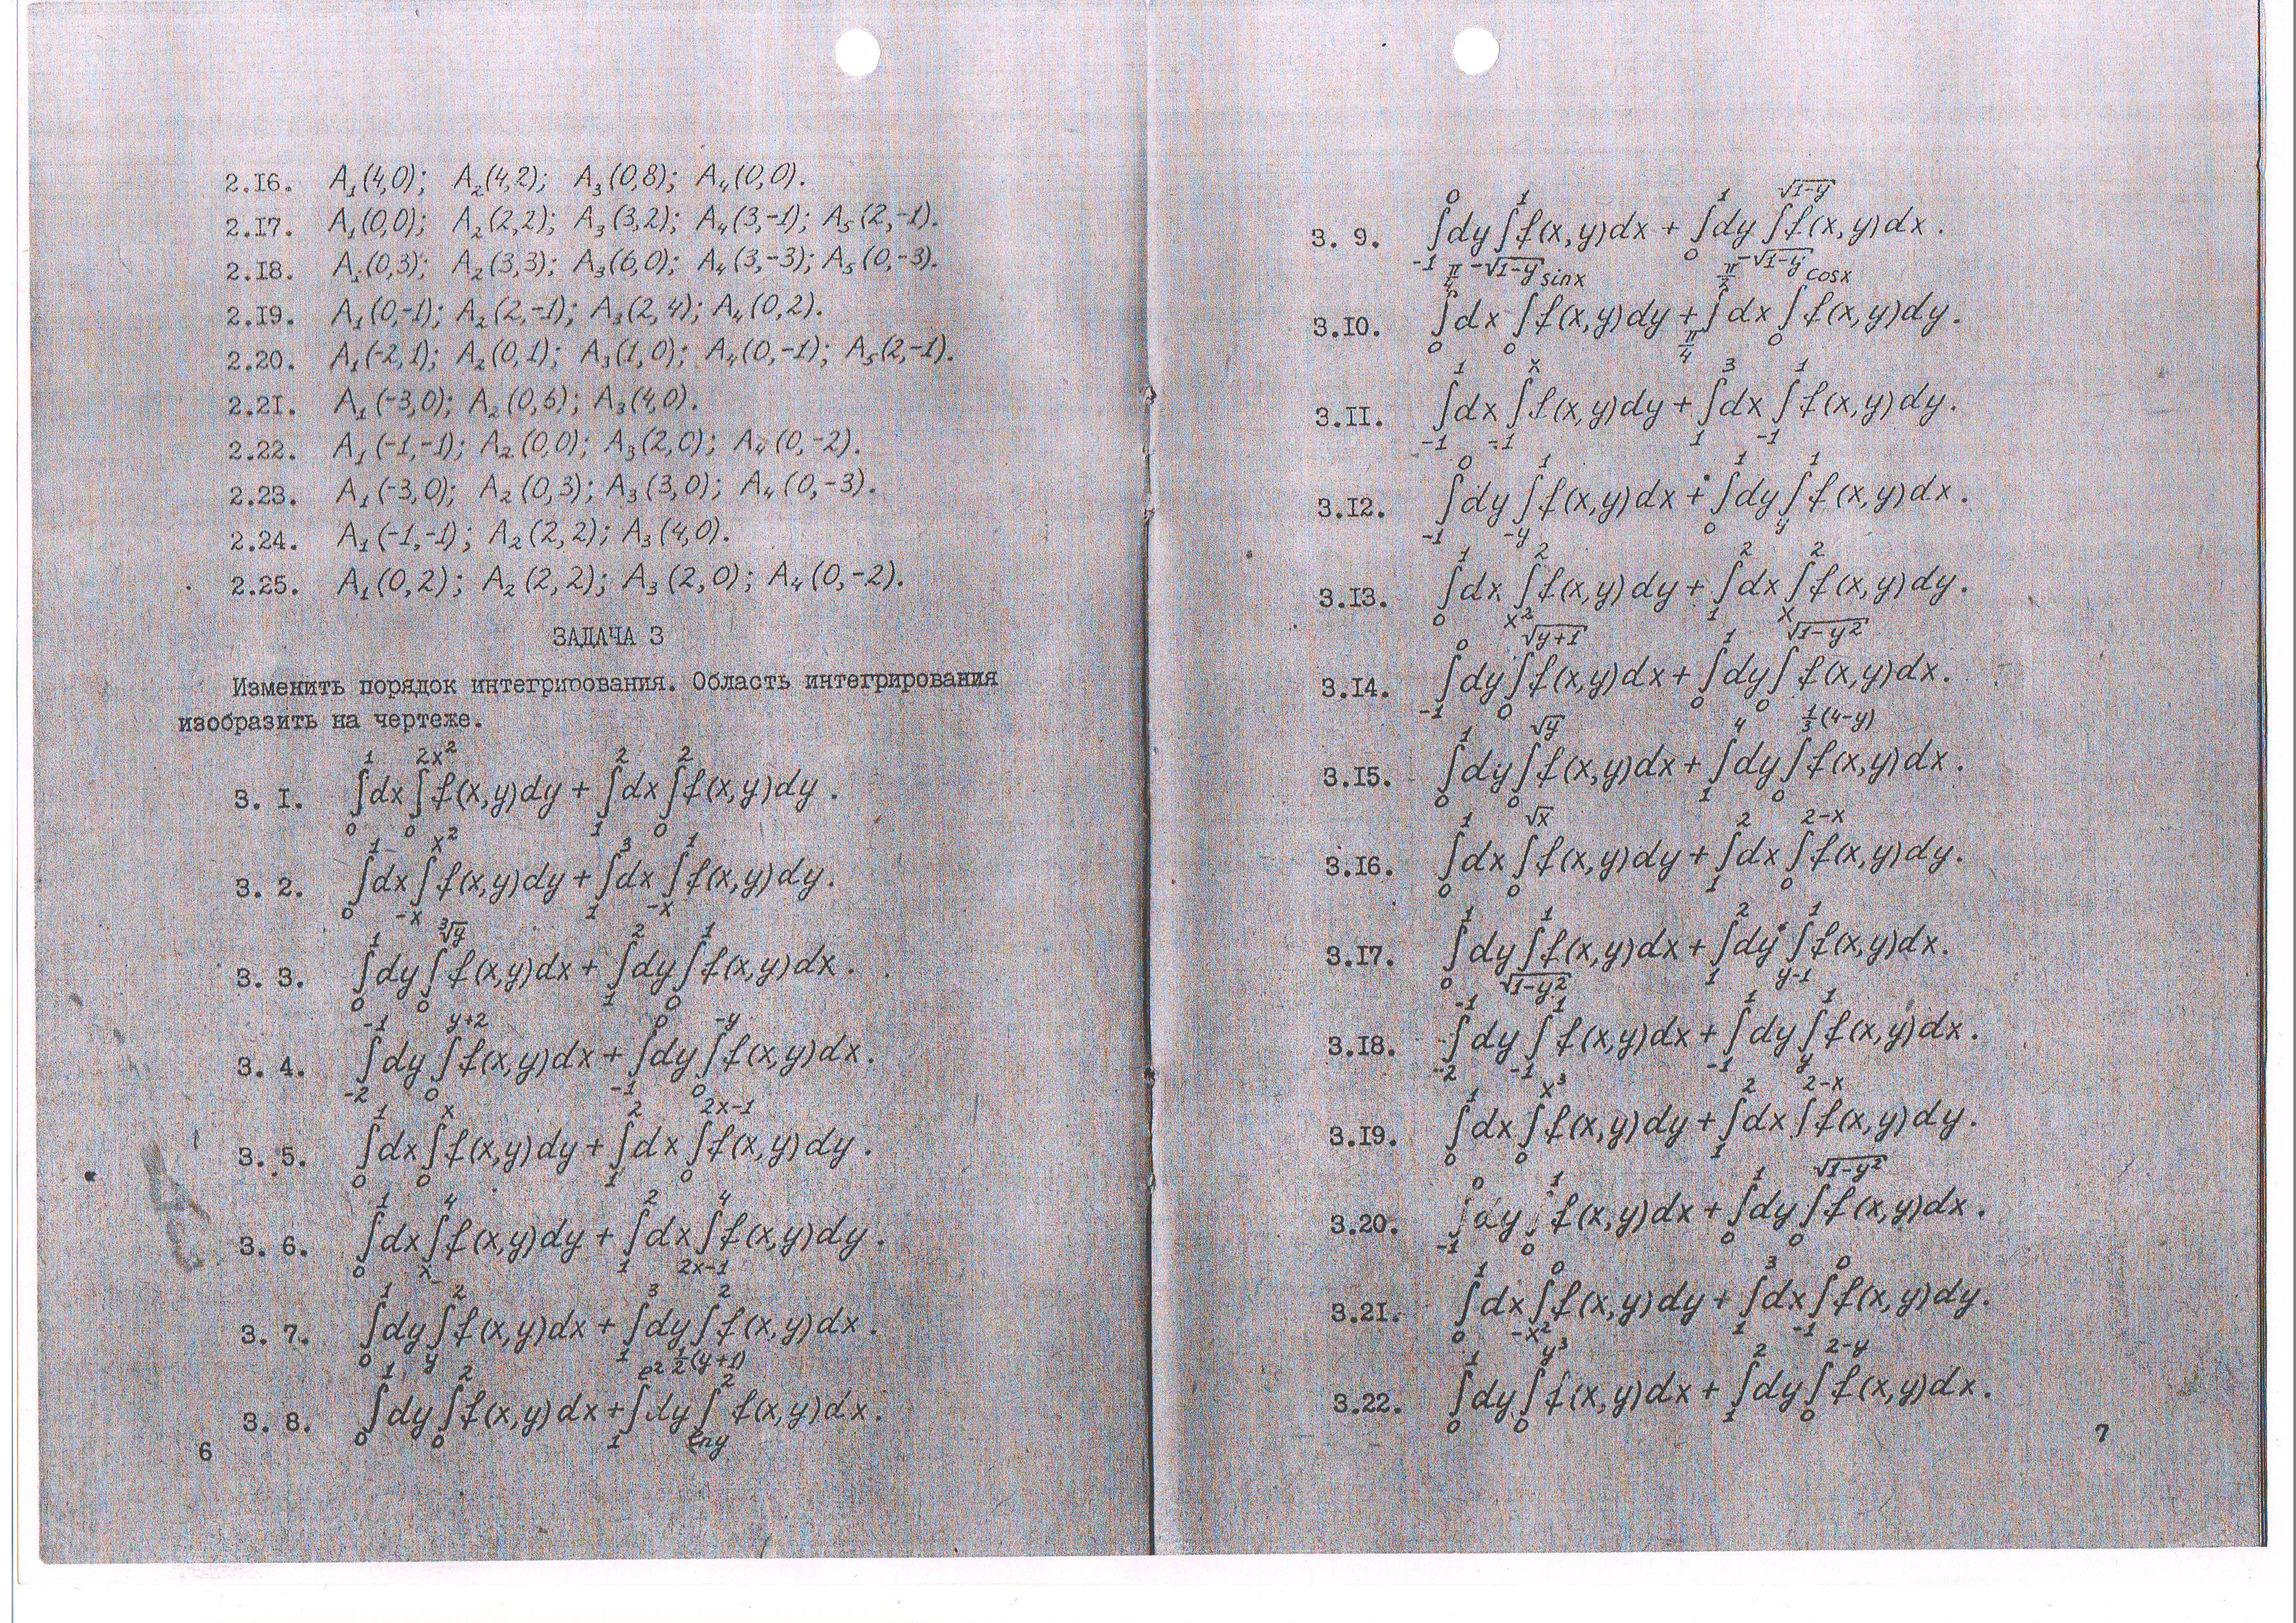 2.16. A₁(4,0); A₂(4,2); A₃(0,8); A₄(0,0).
2.17. A₁(0,0); A₂(2,2); A₃(3,2); A₄(3,-1); A₅(2,-1).
2.18. A₁(0,3); A₂(3,3); A₃(6,0); A₄(3,-3); A₅(0,-3).
2.19. A₁(0,-1); A₂(2,-1); A₃(2,4); A₄(0,2).
2.20. A₁(-2,1); A₂(0,1); A₃(1,0); A₄(0,-1); A₅(2,-1).
2.21. A₁(-3,0); A₂(0,6); A₃(4,0).
2.22. A₁(-1,-1); A₂(0,0); A₃(2,0); A₄(0,-2).
2.23. A₁(-3,0); A₂(0,3); A₃(3,0); A₄(0,-3).
2.24. A₁(-1,-1); A₂(2,2); A₃(4,0).
2.25. A₁(0,2); A₂(2,2); A₃(2,0); A₄(0,-2).
ЗАДАЧА 3
Изменить порядок интегрирования. Область интегрирования
изобразить на чертеже.
3. 1. ∫_0^1 dx ∫_0^{2x²} f(x,y)dy + ∫_1^2 dx ∫_0^2 f(x,y)dy.
3. 2. ∫_0^1 dx ∫_{-x}^{x²} f(x,y)dy + ∫_1^3 dx ∫_{-x}^1 f(x,y)dy.
3. 3. ∫_0^1 dy ∫_0^{∛y} f(x,y)dx + ∫_1^2 dy ∫_0^1 f(x,y)dx.
3. 4. ∫_{-2}^{-1} dy ∫_0^{y+2} f(x,y)dx + ∫_{-1}^0 dy ∫_0^{-y} f(x,y)dx.
3. 5. ∫_0^1 dx ∫_0^x f(x,y)dy + ∫_1^2 dx ∫_0^{2x-1} f(x,y)dy.
3. 6. ∫_0^1 dx ∫_x^4 f(x,y)dy + ∫_1^2 dx ∫_{2x-1}^4 f(x,y)dy.
3. 7. ∫_0^1 dy ∫_y^2 f(x,y)dx + ∫_1^3 dy ∫_{½(y+1)}^2 f(x,y)dx.
3. 8. ∫_0^1 dy ∫_0^2 f(x,y)dx + ∫_1^{e²} dy ∫_{ℓny}^2 f(x,y)dx.
6
3. 9. ∫_{-1}^0 dy ∫_{-√(1-y)}^1 f(x,y)dx + ∫_0^1 dy ∫_{-√(1-y)}^{√(1-y)} f(x,y)dx.
3.10. ∫_0^{π/4} dx ∫_0^{sinx} f(x,y)dy + ∫_{π/4}^{π/2} dx ∫_0^{cosx} f(x,y)dy.
3.11. ∫_{-1}^1 dx ∫_{-1}^x f(x,y)dy + ∫_1^3 dx ∫_{-1}^1 f(x,y)dy.
3.12. ∫_{-1}^0 dy ∫_{-y}^1 f(x,y)dx + ∫_0^1 dy ∫_y^1 f(x,y)dx.
3.13. ∫_0^1 dx ∫_{x²}^2 f(x,y)dy + ∫_1^2 dx ∫_x^2 f(x,y)dy.
3.14. ∫_{-1}^0 dy ∫_0^{√(y+1)} f(x,y)dx + ∫_0^1 dy ∫_0^{√(1-y²)} f(x,y)dx.
3.15. ∫_0^1 dy ∫_0^{√y} f(x,y)dx + ∫_1^4 dy ∫_0^{⅓(4-y)} f(x,y)dx.
3.16. ∫_0^1 dx ∫_0^{√x} f(x,y)dy + ∫_1^2 dx ∫_0^{2-x} f(x,y)dy.
3.17. ∫_0^1 dy ∫_{√(1-y²)}^1 f(x,y)dx + ∫_1^2 dy ∫_{y-1}^1 f(x,y)dx.
3.18. ∫_{-2}^{-1} dy ∫_{-1}^1 f(x,y)dx + ∫_{-1}^1 dy ∫_y^1 f(x,y)dx.
3.19. ∫_0^1 dx ∫_0^{x³} f(x,y)dy + ∫_1^2 dx ∫^{2-x} f(x,y)dy.
3.20. ∫_{-1}^0 dy ∫_0^1 f(x,y)dx + ∫_0^1 dy ∫_0^{√(1-y²)} f(x,y)dx.
3.21. ∫_0^1 dx ∫_{-x²}^0 f(x,y)dy + ∫_1^3 dx ∫_{-1}^0 f(x,y)dy.
3.22. ∫_0^1 dy ∫_0^{y³} f(x,y)dx + ∫_1^2 dy ∫_0^{2-y} f(x,y)dx.
7